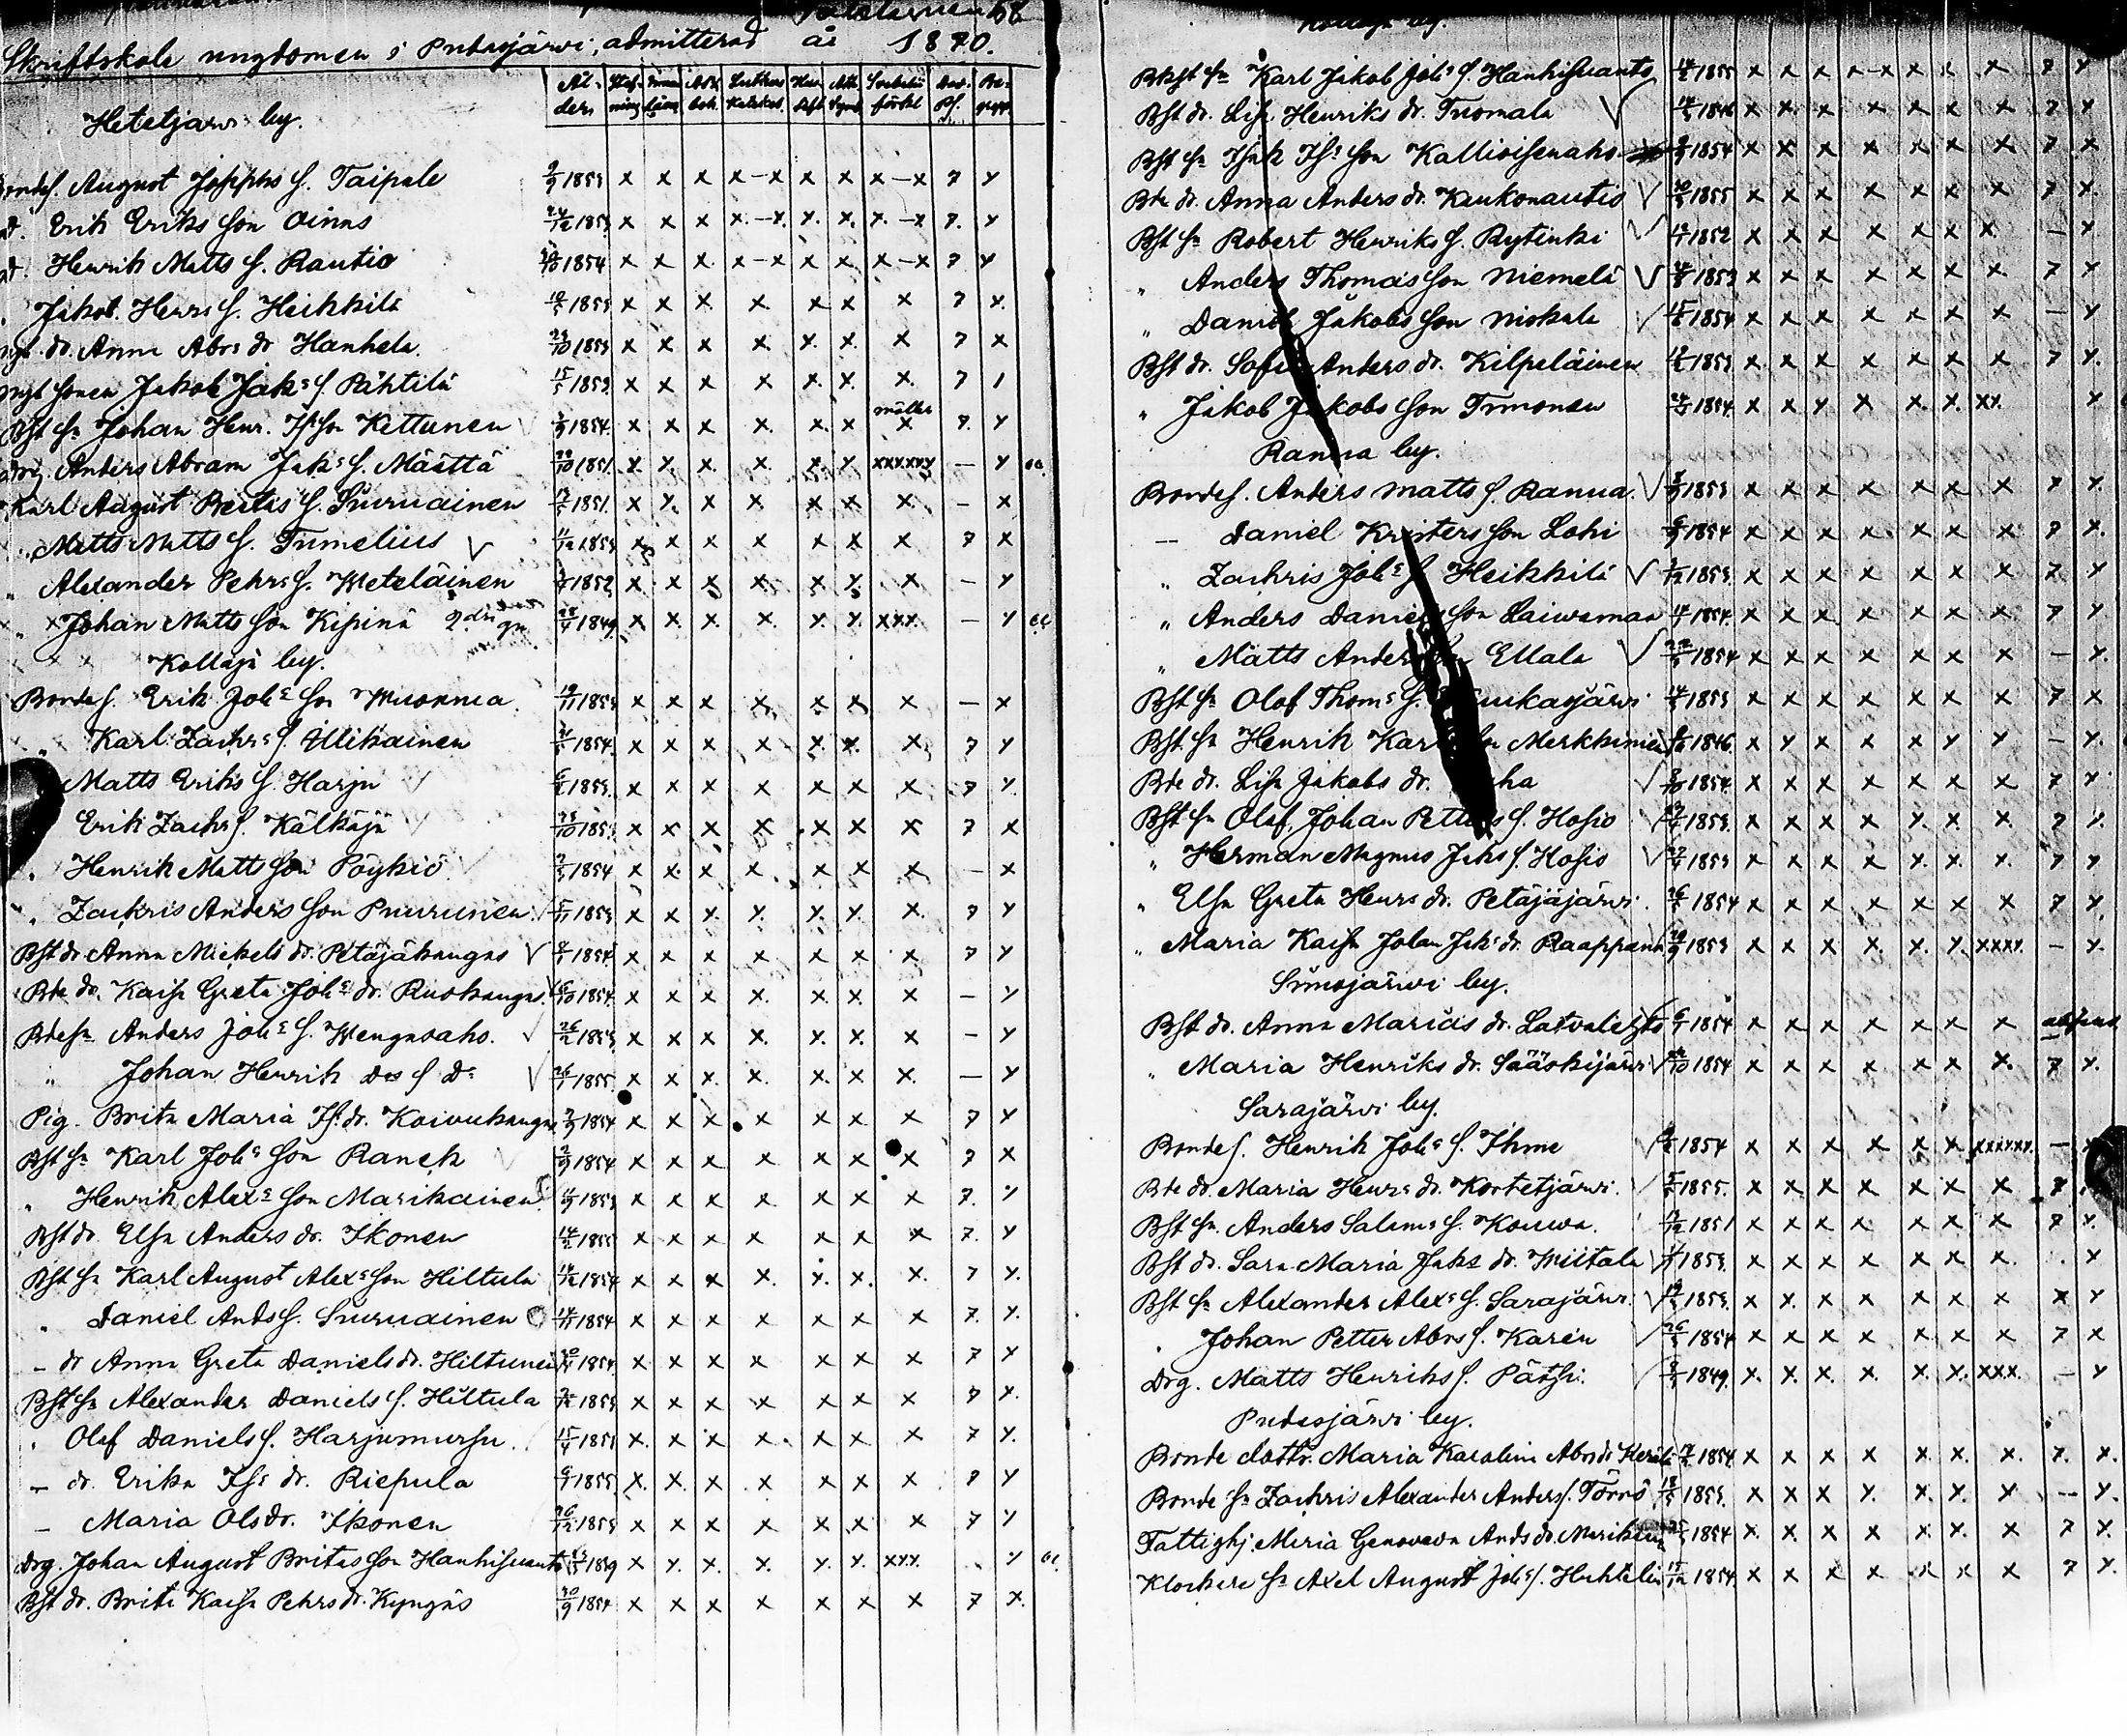 Skriftskole ungdomen i Pudasjärvi, admitterad år 1870.
Ål- der. Staf- ning Innan läsn. A.B.C. bok. Luthers Katekes. Hus- tafl. Ath. Symb. Svebelii förkl. Dav. Ps. Be- grepp.
Hetetjärvi by.
Bondes. August Josephs S. Taipale 1853 x x x x-x x x x-x 7 x
d. Erik Eriks Son Oinas 1853 x x x x-x x x x-x 7. x
d. Henrik Matts S. Rautio 1854 x x x x-x x x x-x 7 x
Jakob Henrs S. Heikkilä 1853 x x x x x x x 7 x
dr. Anna Abrs dr Hanhela 23/10 1853 x x x x x x x 7 x
Sonen Jakob Jaks S. Pähtilä 15/5 1853 x x x x x x x 7 1
Bst Sn Johan Henr. Is Son Kettunen 1854 x x x x x x x 7. x
Anders Abram Jaks S. Määttä 1851 x x x x x x xxxxxx — x
Karl August Beatas S. Suruainen 1851 x x x x x x x — x
Matts Matts S. Tumelius 1853 x x x x x x x 7 x
Alexander Pehrs S. Weteläinen 1852 x x x x x x x — x
Johan Matts Son Kipinä 2dra gn 1849 x x x x x x xxx — x
Kollaja by.
Bondes. Erik Johs Son Wuorma 1853 x x x x x x x — x
Karl Zachrs S. Illikainen 1854 x x x x x x x 7 x
Matts Eriks S. Harju 1853 x x x x x x x 7 x
Erik Zachrs S. Kälkäjä 1853 x x x x x x x 7 x
Henrik Matts Son Pöykiö 1854 x x x x x x x — x
Zachris Anders Son Puurunen 1853 x x x x x x x 7 x
Bst dr Anna Mickels dr. Petäjäkangas 1854 x x x x x x x 7 x
Bde dr. Kaisa Greta Johs dr. Ruokangas 1854 x x x x x x x — x
Bdesn Anders Johs S. Wengasaho 1853 x x x x x x x — x
Johan Henrik Ds S Do 1855 x x x x x x x — x
Pig. Brita Maria Is. dr. Koivukangas 1854 x x x x x x x 7 x
Bst Sn Karl Johs Son Ranck 1854 x x x x x x x 7 x
Henrik Alexs Son Marikainen 1853 x x x x x x x 7. x
Bst dr. Elsa Anders dr. Ikonen 1855 x x x x x x x 7. x
Bst Sn Karl August Alexs Son Hiltula 1854 x x x x x x x 7 x
Daniel Ands S. Suruainen 1854 x x x x x x x 7. x
— dr Anna Greta Daniels dr. Hiltunen 1854 x x x x x x x 7 x
Bst Sn Alexander Daniels S. Hiltula 1853 x x x x x x x 7 x
Olof Daniels S. Harjumursu 15/4 1851 x x x x x x x 7 x
— dr. Erika Is dr. Riepula 1855 x x x x x x x 7 x
— Maria Ols dr. Ikonen 26/12 1853 x x x x x x x 7 x
Drg. Johan August Britas Son Hanhisuanto 1849 x x x x x x xxx x
Bst dr. Brita Kaisa Pehrs dr. Kyngäs 1854 x x x x x x x 7 x
Kollaja by.
Bst Sn Karl Jakob Johs S. Hanhisuanto 1855 x x x x-x x x x 7 x
Bst dr. Lisa Henriks dr. Tuomala 1846 x x x x x x x 7 x
Bst Sn Isak Is Son Kallioisenaho 1854 x x x x x x x 7 x
Bde dr. Anna Anders dr. Kaukonautio 1855 x x x x x x x 7 x
Bst Sn Robert Henriks S. Rytinki 1852 x x x x x x x — x
Anders Thomas Son Niemelä 1853 x x x x x x x 7 x
Daniel Jakobs Son Niskala 1854 x x x x x x x — x
Bst dr. Sofia Anders dr. Kilpeläinen 1853 x x x x x x x 7 x
Jakob Jakobs Son Timonen 1854 x x x x x x xx x
Ranua by.
Bondes. Anders Matts S. Ranua 1853 x x x x x x x 7 x
— Daniel Kristers Son Lohi 1854 x x x x x x x 7 x
Zachris Johs S Heikkilä 1853 x x x x x x x 7 x
Anders Daniels Son Laiwamaa 1854 x x x x x x x 7 x
Matts Anders Ellala 1854 x x x x x x x — x
Bst Sn Olof Thoms S. 1853 x x x x x x x 7 x
Bst Sn Henrik Karls Merkkiniemi 1846 x x x x x x x — x
Bde dr. Lisa Jakobs dr. 1854 x x x x x x x 7 x
Bst Sn Olof Johan Petters S. Hosio 1853 x x x x x x x 7 x
Herman Magnus Jaks S. Hosio 1853 x x x x x x x 7 x
Elsa Greta Henrs dr. Petäjäjärvi 1854 x x x x x x x 7 x
Maria Kaisa Johan Jaks dr. Raappana 1853 x x x x x x xxxx — x
Siuruojärwi by.
Bst dr. Anna Marias dr. Latvalehto 1854 x x x x x x x absens
Maria Henriks dr. Sääskijärvi 1854 x x x x x x x 7 x
Sarajärvi by.
Bondes. Henrik Johs S. Ihme 1854 x x x x x x xxxxxx — x
Bde dr. Maria Henrs dr. Kortetjärvi 1855 x x x x x x x 7
Bst Sn. Anders Salams S. Kouwa 1851 x x x x x x x 7 x
Bst dr. Sara Maria Jaks dr. Miitala 1853 x x x x x x x x
Bst Sn Alexander Alexs S. Sarajärvi 1853 x x x x x x x x x
Johan Petter Abrs S. Karén 1854 x x x x x x x 7 x
Drg. Matts Henriks S. Pätsi 1849 x x x x x x xxx — x
Pudasjärvi by.
Bonde dottr. Maria Karolina Abrs dr 1854 x x x x x x x 7. x
Bonde Sn Zachris Alexander Anders S. Törrö 1853 x x x x x x x — x
Fattighj. Maria Genoveva Ands dr. 1854 x x x x x x x 7 x
Klockare Sn Axel August Johs S. Huhtelin 1854 x x x x x x x 7 x